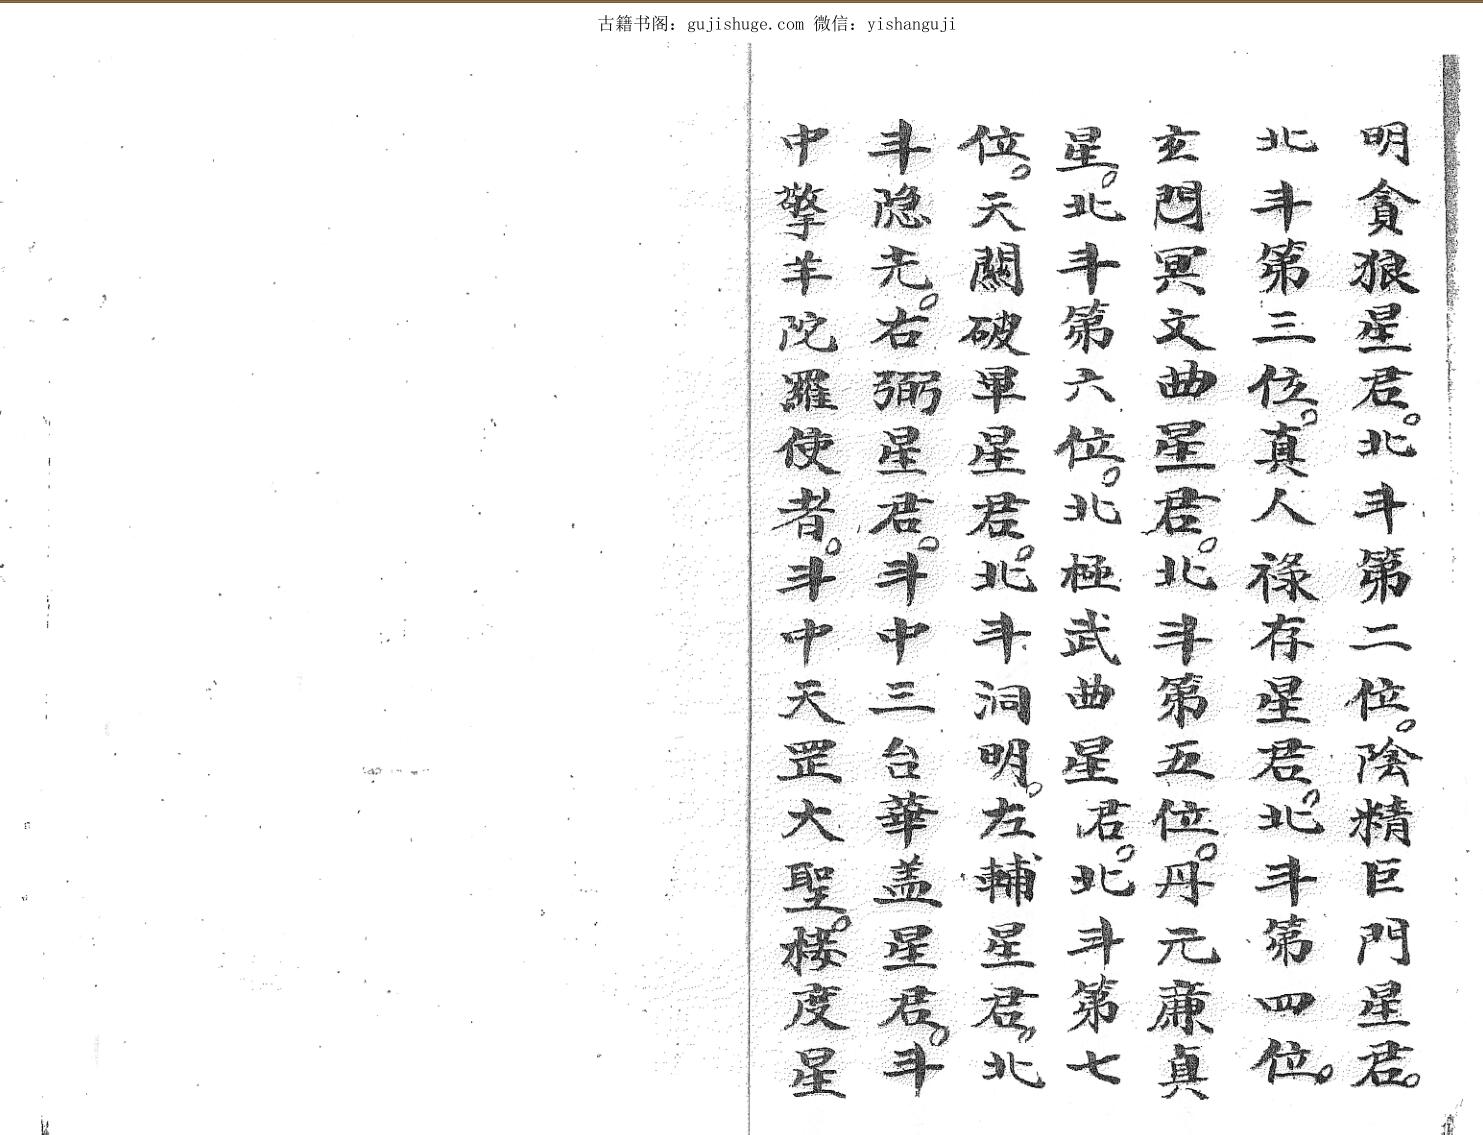 古籍书阁: gujishuge.com 微信: yishanguji
明貪狼星君。北斗第二位。陰精巨門星君。
北斗第三位。真人祿存星君。北斗第四位。
玄冥文曲星君。北斗第五位。丹元廉真
星。北斗第六位。北極武曲星君。北斗第七
位。天關破軍星君。北斗洞明。左輔星君。北
斗隐光。右弼星君。斗中三台華盖星君。斗
中擎羊陀羅使者。斗中天罡大聖。接度星